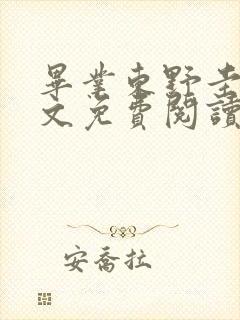 畢業東野圭
文免費閱讀
安喬拉